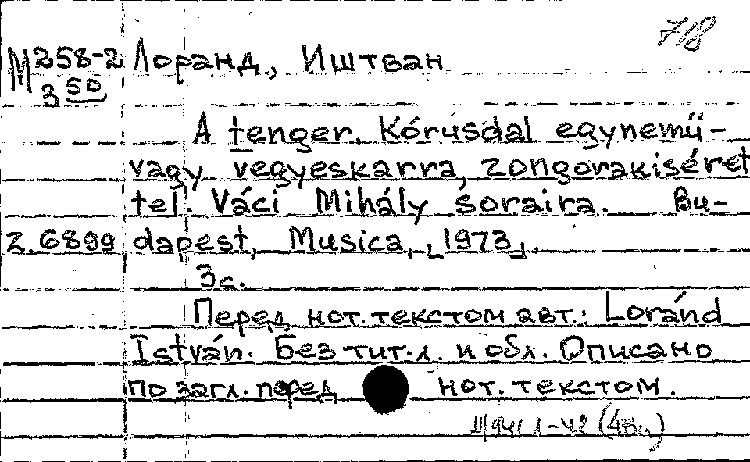 718
М 258-2 Лоранд, Иштван
3 50
A tenger. Kórusdal egynemű-
vagy vegyeskarra, zongorakiséret
tel. Váci Mihály soraira. Bu-
Z.6899 dapest, Musica, [1973].
3с.
Перед нот. текстом авт.: Loránd
István. Без тит. л. и обл. Описано
по загл. перед нот. текстом.